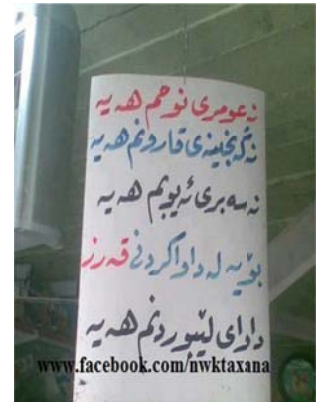 نەعومری نوحم هەیە
نەگەنجینەی قارونم هەیە
نەسەبری ئەیوبم هەیە
بۆیە لە داواکردنی قەرز
داوای لێبوردنم هەیە
www.facebook.com/nwktaxana